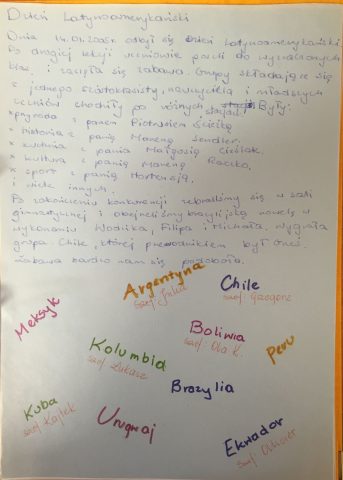 Dzień Latynoamerykański
Dnia 14.01.2005r. odbył się dzień Latynoamerykański
Po drugiej lekcji uczniowie poszli do wyznaczonych
klas i zaczęła się zabawa. Grupy składające się
z jednego szóstoklasisty, nauczyciela i młodszych
uczniów chodziły po różnych stacjach. Były:
* przyroda z panem Piotrusiem Ścisłką
* historia z panią Mareną Sendler.
* kuchnia z panią Małgosią Cieślak.
* kultura z panią Mareną
* sport z panią Hortensją.
i wiele innych.
Po zakończeniu konkurencji zebraliśmy się w sali
gimnastycznej i obejrzeliśmy brazylijską novelę w
wykonaniu Wodnika, Filipa i Michała, wygrała
grupa Chile, której przewodnikiem był
Zabawa bardzo nam się podobała.
Argentyna
szef: Julia
Chile
szef: Grzegorz
Meksyk
Boliwia
szef: Ola K.
Kolumbia
szef: Łukasz
Peru
Brazylia
Kuba
szef: Kajtek
Urugwaj
Ekwador
szef: Oliwier